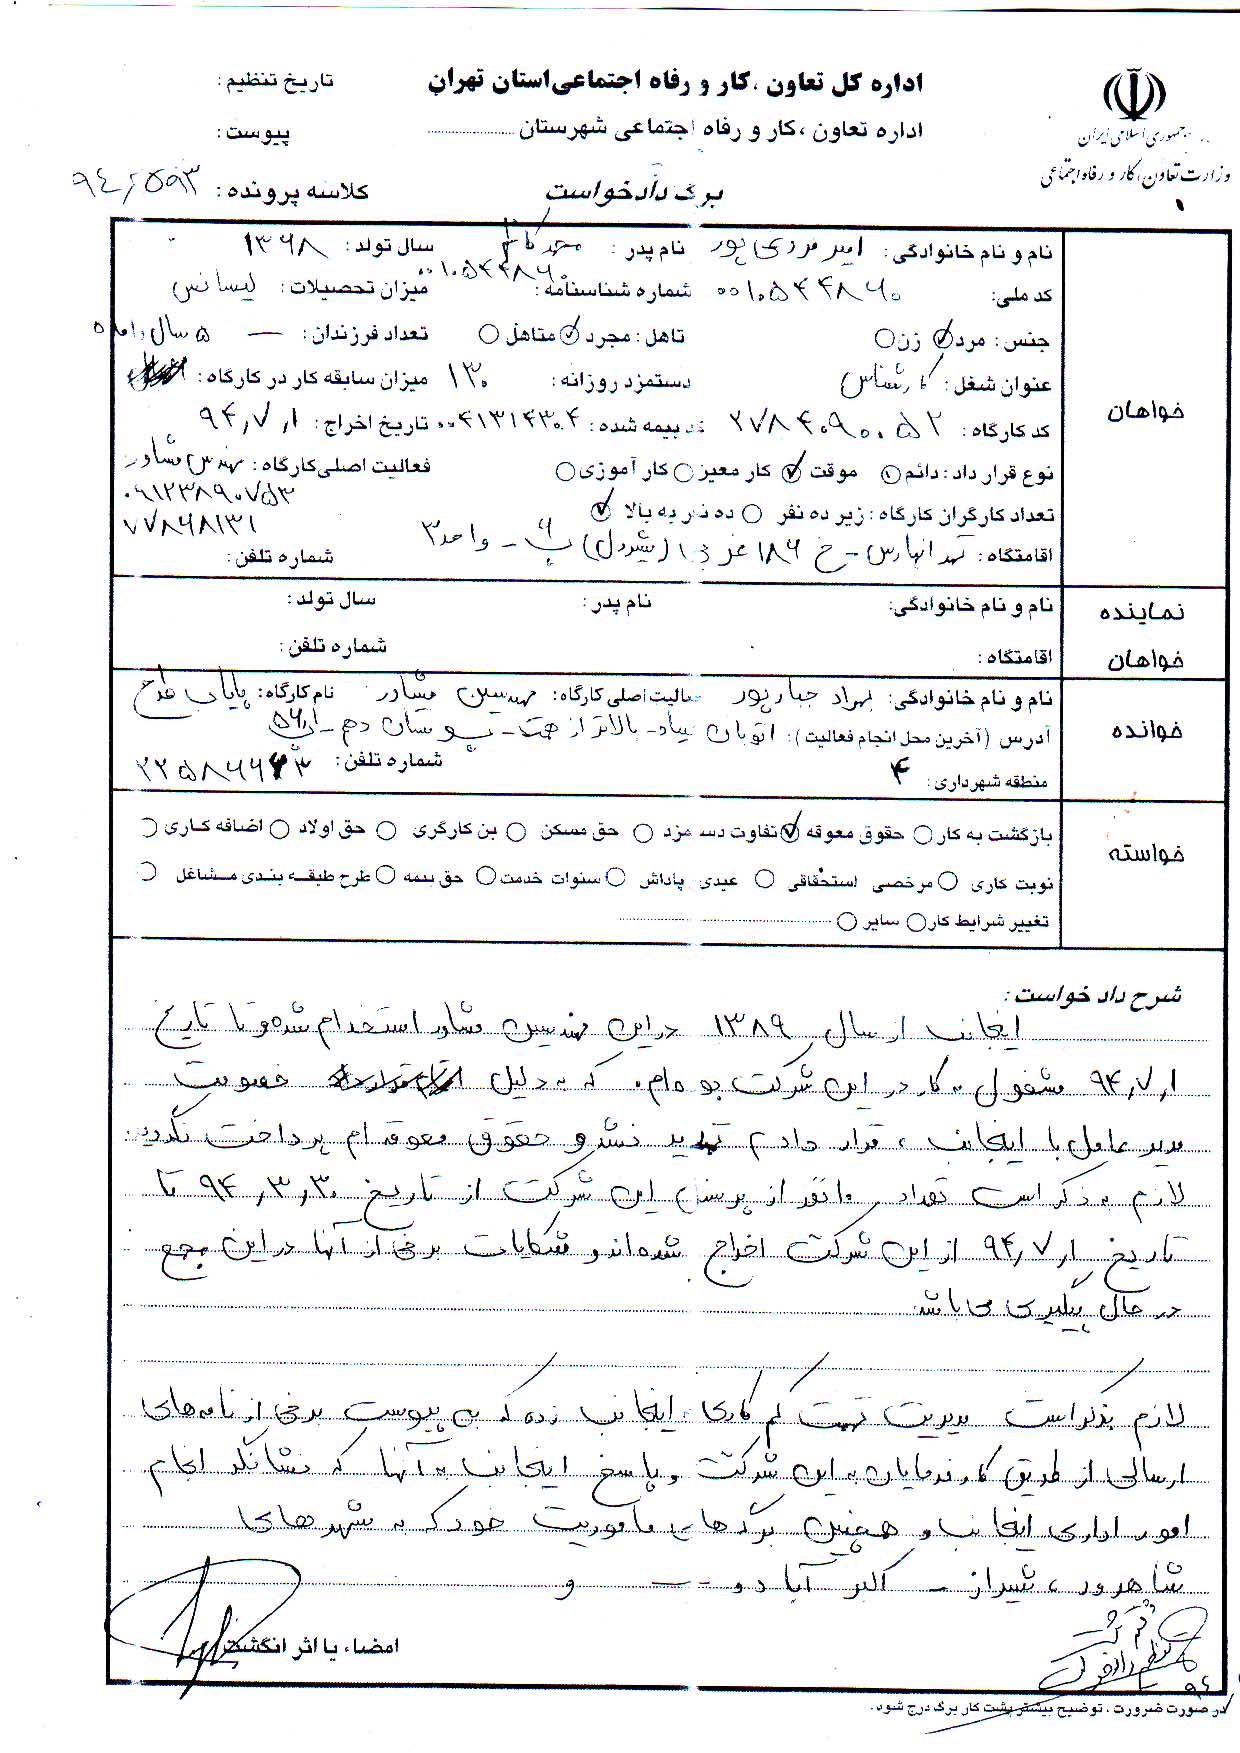 جمهوری اسلامی ایران
وزارت تعاون، کار و رفاه اجتماعی
اداره کل تعاون ،کار و رفاه اجتماعی استان تهران
تاریخ تنظیم :
اداره تعاون ،کار و رفاه اجتماعی شهرستان
پیوست :
برگ دادخواست
کلاسه پرونده : ۹۴/۵۹۳
خواهان
نام و نام خانوادگی: امیر مرزی پور نام پدر : محمد کاظم سال تولد : ۱۳۶۸
کد ملی: ۰۰۱۰۵۴۴۸۶۰ شماره شناسنامه : ۰۰۱۰۵۴۴۸۶۰ میزان تحصیلات : لیسانس
جنس : مرد زن تاهل : مجرد متاهل تعداد فرزندان : —
عنوان شغل : کارشناس دستمزد روزانه : ۱۳۰ میزان سابقه کار در کارگاه : ۵ سال و ماه
کد کارگاه : ۲۷۸۴۰۹۰۰۵۲ کد بیمه شده : ۰۰۴۱۳۱۴۳۰۴ تاریخ اخراج : ۹۴/۷/۱
نوع قرار داد : دائم موقت کار معین کار آموزی فعالیت اصلی کارگاه : مهندسی مشاور
۰۹۱۲۳۸۹۰۷۵۳
تعداد کارگران کارگاه : زیر ده نفر ده نفر به بالا
۷۷۸۶۸۱۳۱
اقامتگاه : تهرانپارس - خ ۱۸۶ غربی (شیردل) پ ۶ - واحد ۳ شماره تلفن :
نماینده خواهان
نام و نام خانوادگی: نام پدر: سال تولد :
اقامتگاه : شماره تلفن :
خوانده
نام و نام خانوادگی: بهزاد جبارپور فعالیت اصلی کارگاه: مهندسین مشاور نام کارگاه: پایاب طرح
آدرس (آخرین محل انجام فعالیت): اتوبان صیاد - بالاتر از همت - بوستان دهم -
منطقه شهرداری : ۴ شماره تلفن :
خواسته
بازگشت به کار حقوق معوقه تفاوت دستمزد حق مسکن بن کارگری حق اولاد اضافه کاری
نوبت کاری مرخصی استحقاقی عیدی پاداش سنوات خدمت حق بیمه طرح طبقه بندی مشاغل
تغییر شرایط کار سایر
شرح دادخواست :
اینجانب از سال ۱۳۸۹ در این مهندسین مشاور استخدام شده و تا تاریخ
۹۴/۷/۱ مشغول به کار در این شرکت بوده‌ام. که به دلیل خصومت
مدیر عامل با اینجانب ، قرار دادم تمدید نشد و حقوق معوقه ام پرداخت نگردید.
لازم به ذکر است تعداد ۱۰ نفر از پرسنل این شرکت از تاریخ ۹۴/۳/۳۰ تا
تاریخ ۹۴/۷/۱ از این شرکت اخراج شده‌اند و شکایات برخی از آنها در این مجمع
در حال پیگیری می باشد.
لازم بذکر است مدیریت تهمت کم کاری به اینجانب زده که به پیوست برخی از نامه های
ارسالی از طریق کارفرمایان به این شرکت و پاسخ اینجانب به آنها که نشانگر انجام
امور اداری اینجانب و همچنین برگه‌های ماموریت خود که به شهرهای
شاهرود ، شیراز - اکبر آباد و --- و
امضاء یا اثر انگشت
در صورت ضرورت ، توضیح بیشتر پشت کار برگ درج شود.